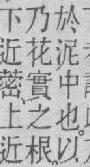 於泥中也。以
乃花實之根
下近蔤上近